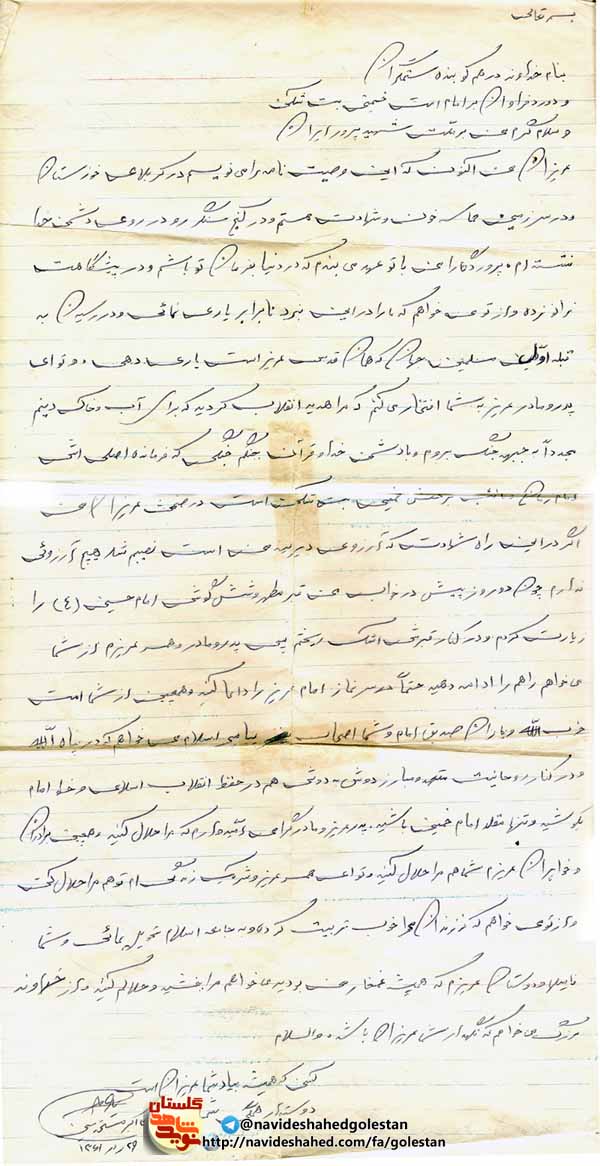 بسمه تعالی
بنام خداوند درهم کوبنده ستمگران
و درود فراوان بر امام امت خمینی بت شکن
و سلام گرم من بر ملت شهید پرور ایران
عزیزان من اکنون که این وصیت نامه را می نویسم در کربلای خوزستان
و در سرزمین حماسه خون و شهادت هستم و در کنج سنگر رو در روی دشمن خدا
نشسته ام، پروردگارا من با تو عهد می بندم که در دنیا بفرمان تو باشم و در پیشگاهت
زانو زده و از تو می خواهم که ما را در این نبرد نابرابر یاری نمائی و در رسیدن به
قبله اول مسلمین جهان که همان قدس عزیز است یاری دهی، و تو ای
پدر و مادر عزیز به شما افتخار می کنم که مرا هدیه انقلاب کردید که برای آب و خاک و دینم
مجدداً به جبهه جنگ بروم و با دشمن خدا و قرآن بجنگم جنگی که فرمانده اصلی اش
امام زمان و نائب برحقش خمینی بت شکن است در ضمن عزیزان من
اگر در این راه شهادت که آرزوی دیرینه من است نصیبم شد هیچ آرزوئی
ندارم چون دو روز پیش در خواب من قبر مطهر و شش گوشه امام حسین (ع) را
زیارت کردم و در کنار قبرش اشک ریختم پس پدر و مادر و همسر عزیزم از شما
می خواهم راهم را ادامه دهید حتماً در سر نماز امام عزیز را دعا کنید و همچنین از شما امت
حزب الله و یاران صدیق امام و شما اصحاب پیامبر اسلام می خواهم که در پناه الله
و در کنار روحانیت متعهد و مبارز دوش به دوش هم در حفظ انقلاب اسلامی و خط امام
بکوشید و تنها مقلد امام خمینی باشید. پدر عزیز و مادر گرامی امیدوارم که مرا حلال کنید و همچنین برادران
و خواهران عزیزم شما هم مرا حلال کنید و تو ای همسر عزیز و شریک زندگی ام تو هم مرا حلال کن
و از تو می خواهم که فرزندان مرا خوب تربیت کرده و به جامعه اسلام تحویل بمائی و شما
فامیلها و دوستان عزیزم که همیشه غمخار من بودید می خواهم مرا ببخشید و حلالم کنید و از خداوند
بزرگ می خواهم که نگهدار شما عزیزان باشد والسلام
کسی که همیشه بیاد شما عزیزان است
دوستدار شما
۱۳۶۱
گلستان
نوید شاهد
@navideshahedgolestan
http://navideshahed.com/fa/golestan